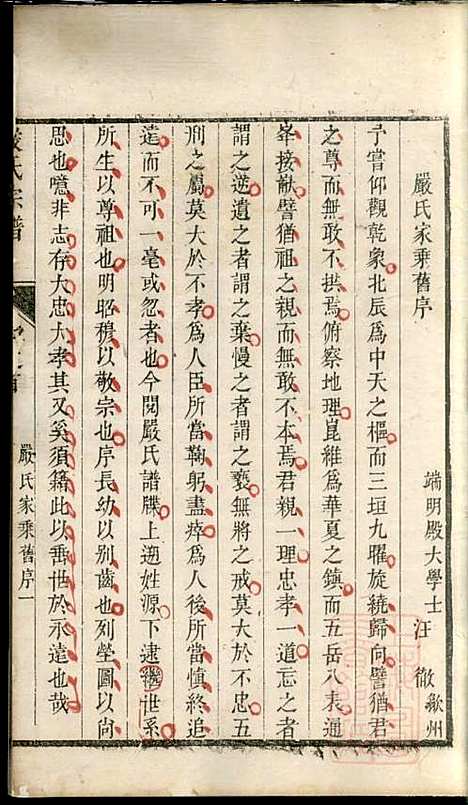 嚴氏家乘舊序
端明殿大學士汪徹歙州
予嘗仰觀乾象北辰爲中天之樞而三垣九曜旋繞歸向譬猶君
之尊而無敢不拱焉俯察地理崑維爲華夏之鎮而五岳八表通
峯接猷譬猶祖之親而無敢不本焉君親一理忠孝一道忘之者
謂之逆遺之者謂之棄慢之者謂之褻無將之戒莫大於不忠五
刑之屬莫大於不孝爲人臣所當鞠躬盡瘁爲人後所當慎終追
遠而不可一毫或忽者也今閱嚴氏譜牒上遡姓源下逮世系
所生以尊祖也明昭穆以敬宗也序長幼以别齒也列塋圖以尚
思也噫非志存大忠大孝其又奚須籍此以垂世於永遠也哉
嚴氏宗譜
卷之首
嚴氏家乘舊序一